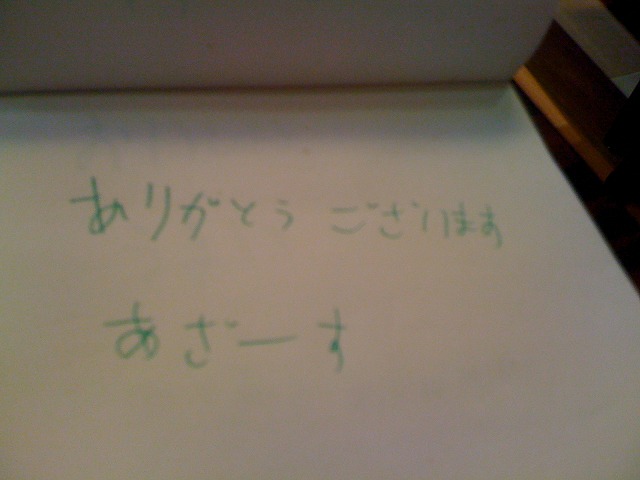 ありがとう ございます
あざーす